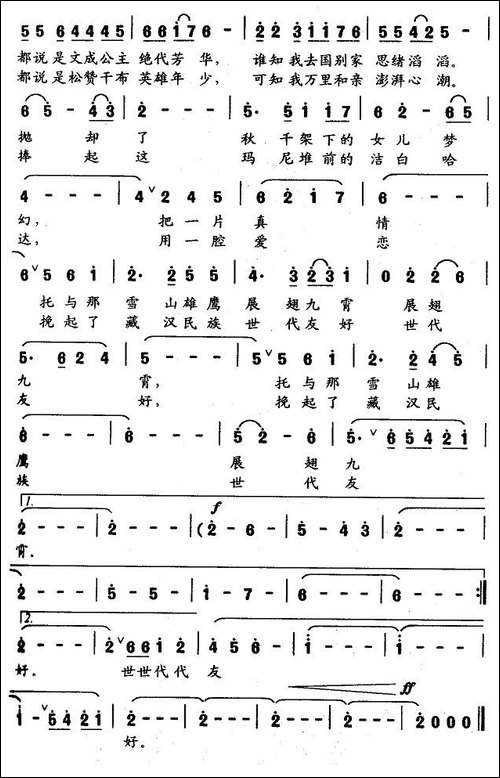 5 5 6 4 4 4 4 5 | 6 6 i 7 6 - | 2 2 3 i 7 i 7 6 | 5 5 4 2 5 - |
都说是文成公主 绝代芳华， 谁知我去国别家 思绪滔滔。
都说是松赞干布 英雄年少， 可知我万里和亲 澎湃心潮。
6 5 - 4 3 | 2 - - - | 5 · 5 i 7 | 6 - 2 - 6 5 |
抛却了 秋千架下的女儿梦
捧起这 玛尼堆前的洁白哈
4 - - - | 4 ∨ 2 4 5 | 6 2 i 7 | 6 - - - |
幻， 把一片真情
达， 用一腔爱恋
6 ∨ 5 6 i | 2 · 2 5 5 | 4 · 3 2 3 i | 0 2 2 6 |
托与那雪山雄鹰展翅九霄 展翅
挽起了藏汉民族世代友好 世代
5 · 6 2 4 | 5 - - - | 5 ∨ 5 6 i | 2 · 2 4 5 |
九霄， 托与那雪山雄
友好， 挽起了藏汉民
6 - - - | 6 - - - | 5 2 - 6 | 5 · ∨ 6 5 4 2 1 |
鹰 展翅九
族 世代友
1. f
2 - - - | 2 - - - | (2 - 6 - | 5 - 4 3 | 2 - - - |
霄。
2 - - - | 5 - 5 - | i - 7 - | 6 - - - | 6 - - - :||
2.
2 - - - | 2 ∨ 6 6 i 2 | 4 5 6 - | i - - - | i - - - |
好。 世世代代友
ff
i - ∨ 5 4 2 1 | 2 - - - | 2 - - - | 2 - - - | 2 - - - | 2 0 0 0 ||
好。